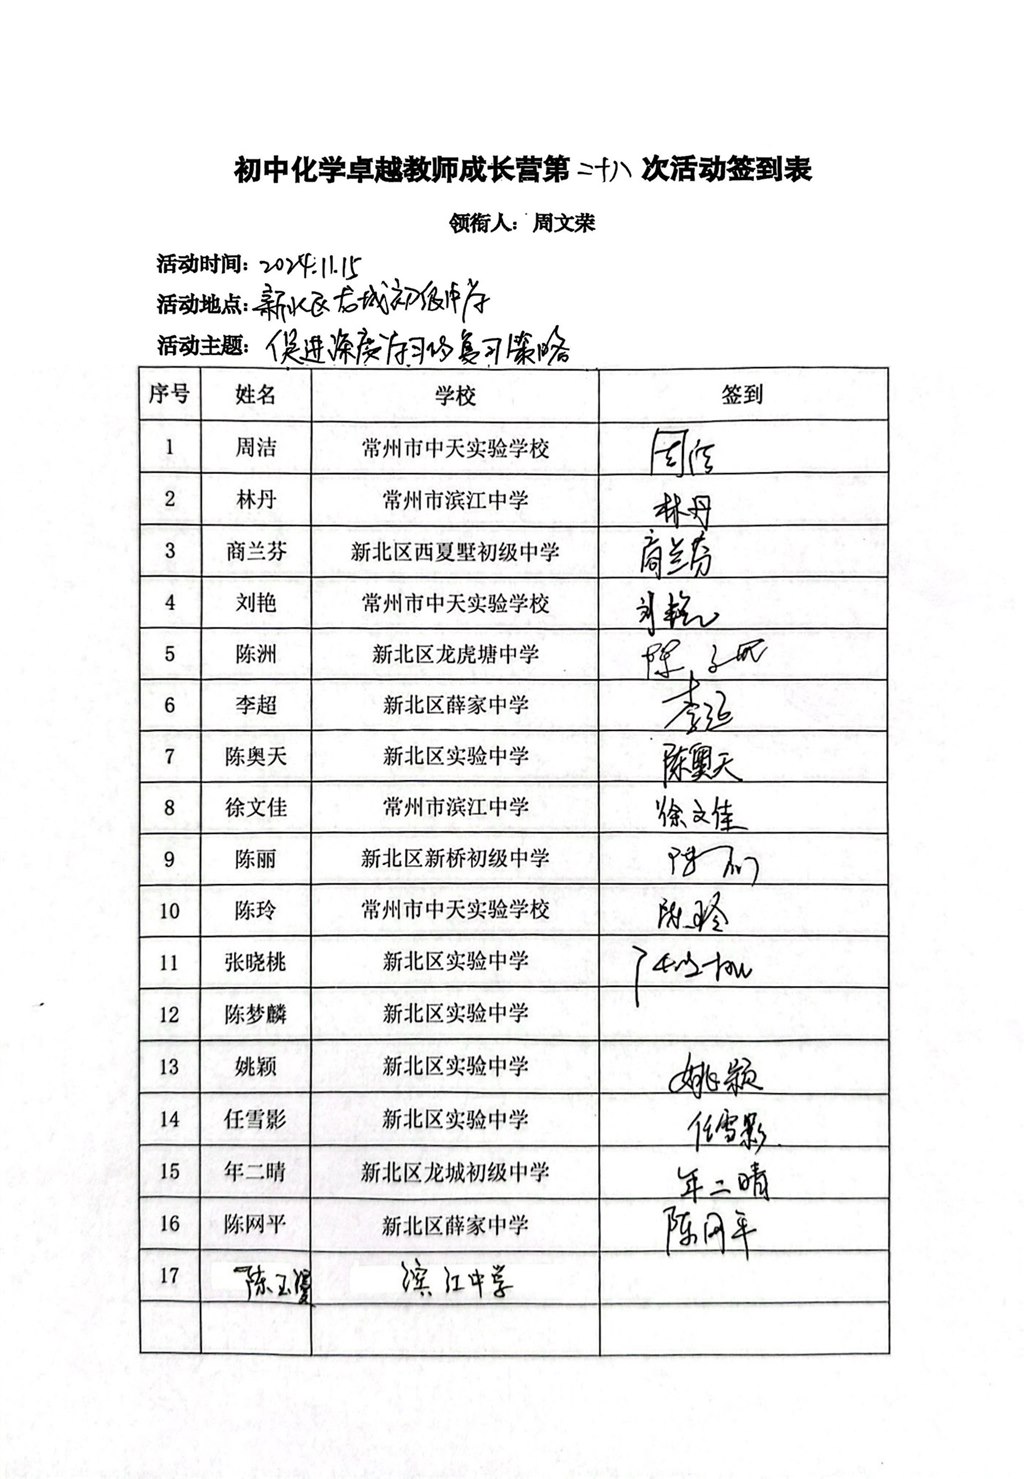 初中化学卓越教师成长营第二十八次活动签到表
领衔人：周文荣
活动时间：2024.11.15
活动地点：新北区龙城初级中学
活动主题：促进深度学习的复习策略
序号 姓名 学校 签到
1 周洁 常州市中天实验学校 周洁
2 林丹 常州市滨江中学 林丹
3 商兰芬 新北区西夏墅初级中学 商兰芬
4 刘艳 常州市中天实验学校 刘艳
5 陈洲 新北区龙虎塘中学 陈洲
6 李超 新北区薛家中学 李超
7 陈奥天 新北区实验中学 陈奥天
8 徐文佳 常州市滨江中学 徐文佳
9 陈丽 新北区新桥初级中学 陈丽
10 陈玲 常州市中天实验学校 陈玲
11 张晓桃 新北区实验中学 张晓桃
12 陈梦麟 新北区实验中学
13 姚颖 新北区实验中学 姚颖
14 任雪影 新北区实验中学 任雪影
15 年二晴 新北区龙城初级中学 年二晴
16 陈网平 新北区薛家中学 陈网平
17 陈玉 滨江中学